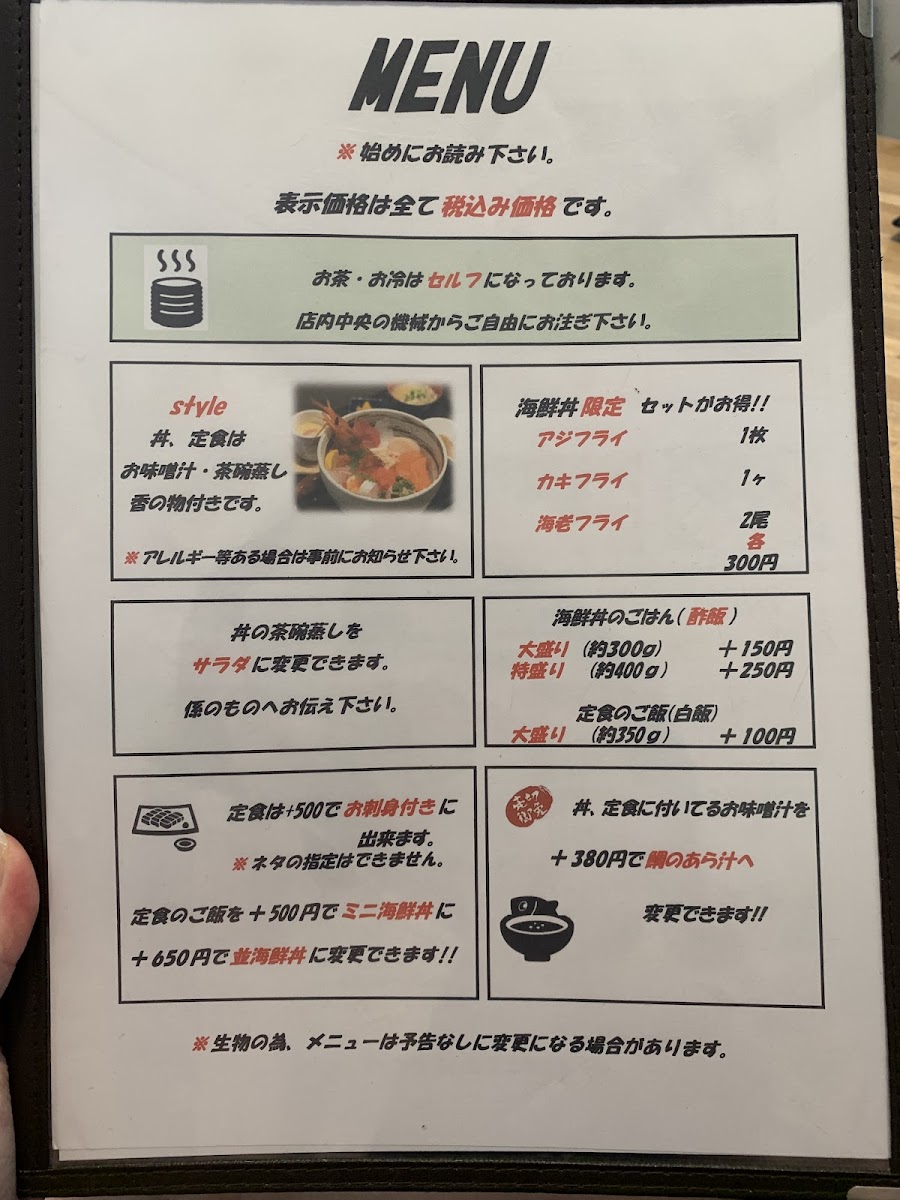 MENU
※始めにお読み下さい。
表示価格は全て税込み価格です。
お茶・お冷はセルフになっております。
店内中央の機械からご自由にお注ぎ下さい。
style
丼、定食は
お味噌汁・茶碗蒸し
香の物付きです。
※アレルギー等ある場合は事前にお知らせ下さい。
海鮮丼限定 セットがお得!!
アジフライ 1枚
カキフライ 1ヶ
海老フライ 2尾
各
300円
丼の茶碗蒸しを
サラダに変更できます。
係のものへお伝え下さい。
海鮮丼のごはん(酢飯)
大盛り (約300g) +150円
特盛り (約400g) +250円
定食のご飯(白飯)
大盛り (約350g) +100円
定食は+500でお刺身付きに
出来ます。
※ネタの指定はできません。
定食のご飯を+500円でミニ海鮮丼に
+650円で並海鮮丼に変更できます!!
丼、定食に付いてるお味噌汁を
+380円で鯛のあら汁へ
変更できます!!
※生物の為、メニューは予告なしに変更になる場合があります。